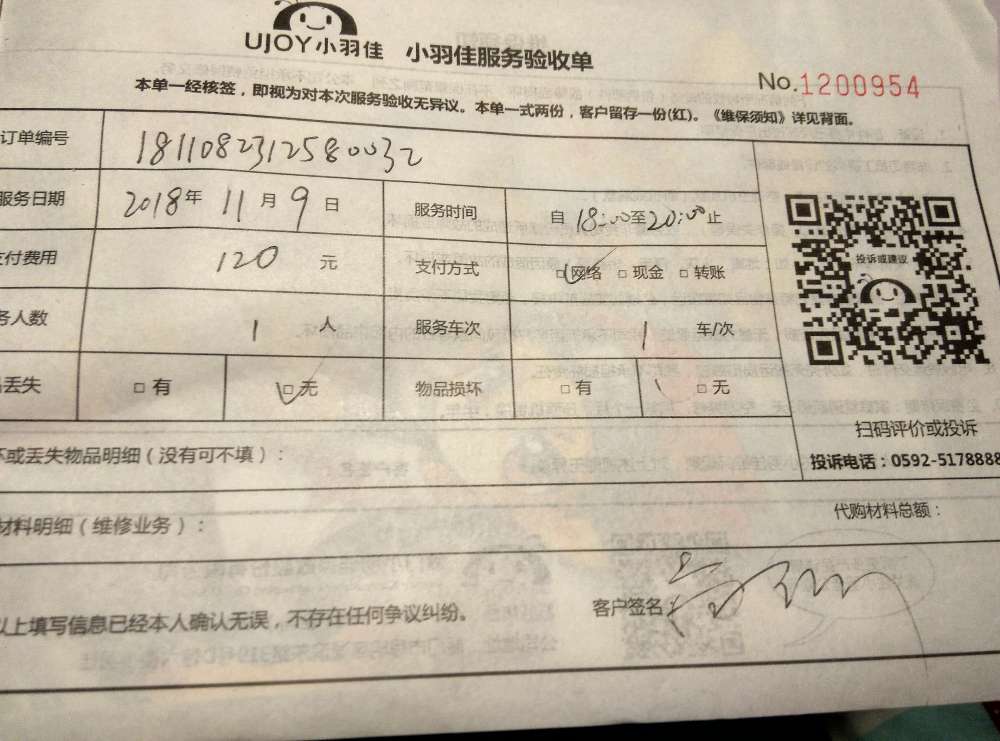 UJOY小羽佳 小羽佳服务验收单
No.1200954
本单一经核签，即视为对本次服务验收无异议。本单一式两份，客户留存一份(红)。《维保须知》详见背面。
订单编号 1811082312580032
服务日期 2018年 11月 9日 服务时间 自 18:00至20:00止
付费用 120 元 支付方式 □网络 □现金 □转账
务人数 1 人 服务车次 1 车/次
丢失 □有 □无 物品损坏 □有 □无
投诉或建议
扫码评价或投诉
投诉电话：0592-5178888
或丢失物品明细（没有可不填）：
材料明细（维修业务）： 代购材料总额：
以上填写信息已经本人确认无误，不存在任何争议纠纷。 客户签名